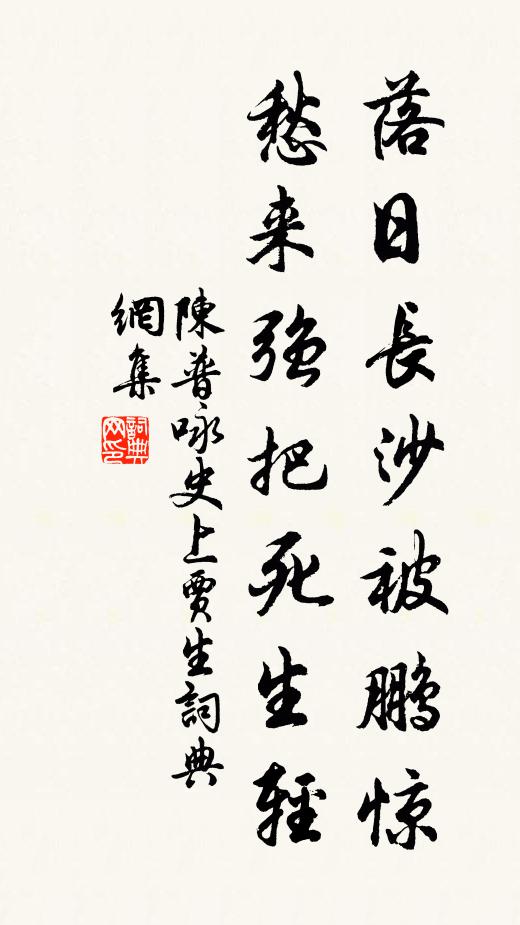 落日長沙被鵬惊
愁来強把死生輕
陳普咏史上賈生詞典
網集
詞典網印